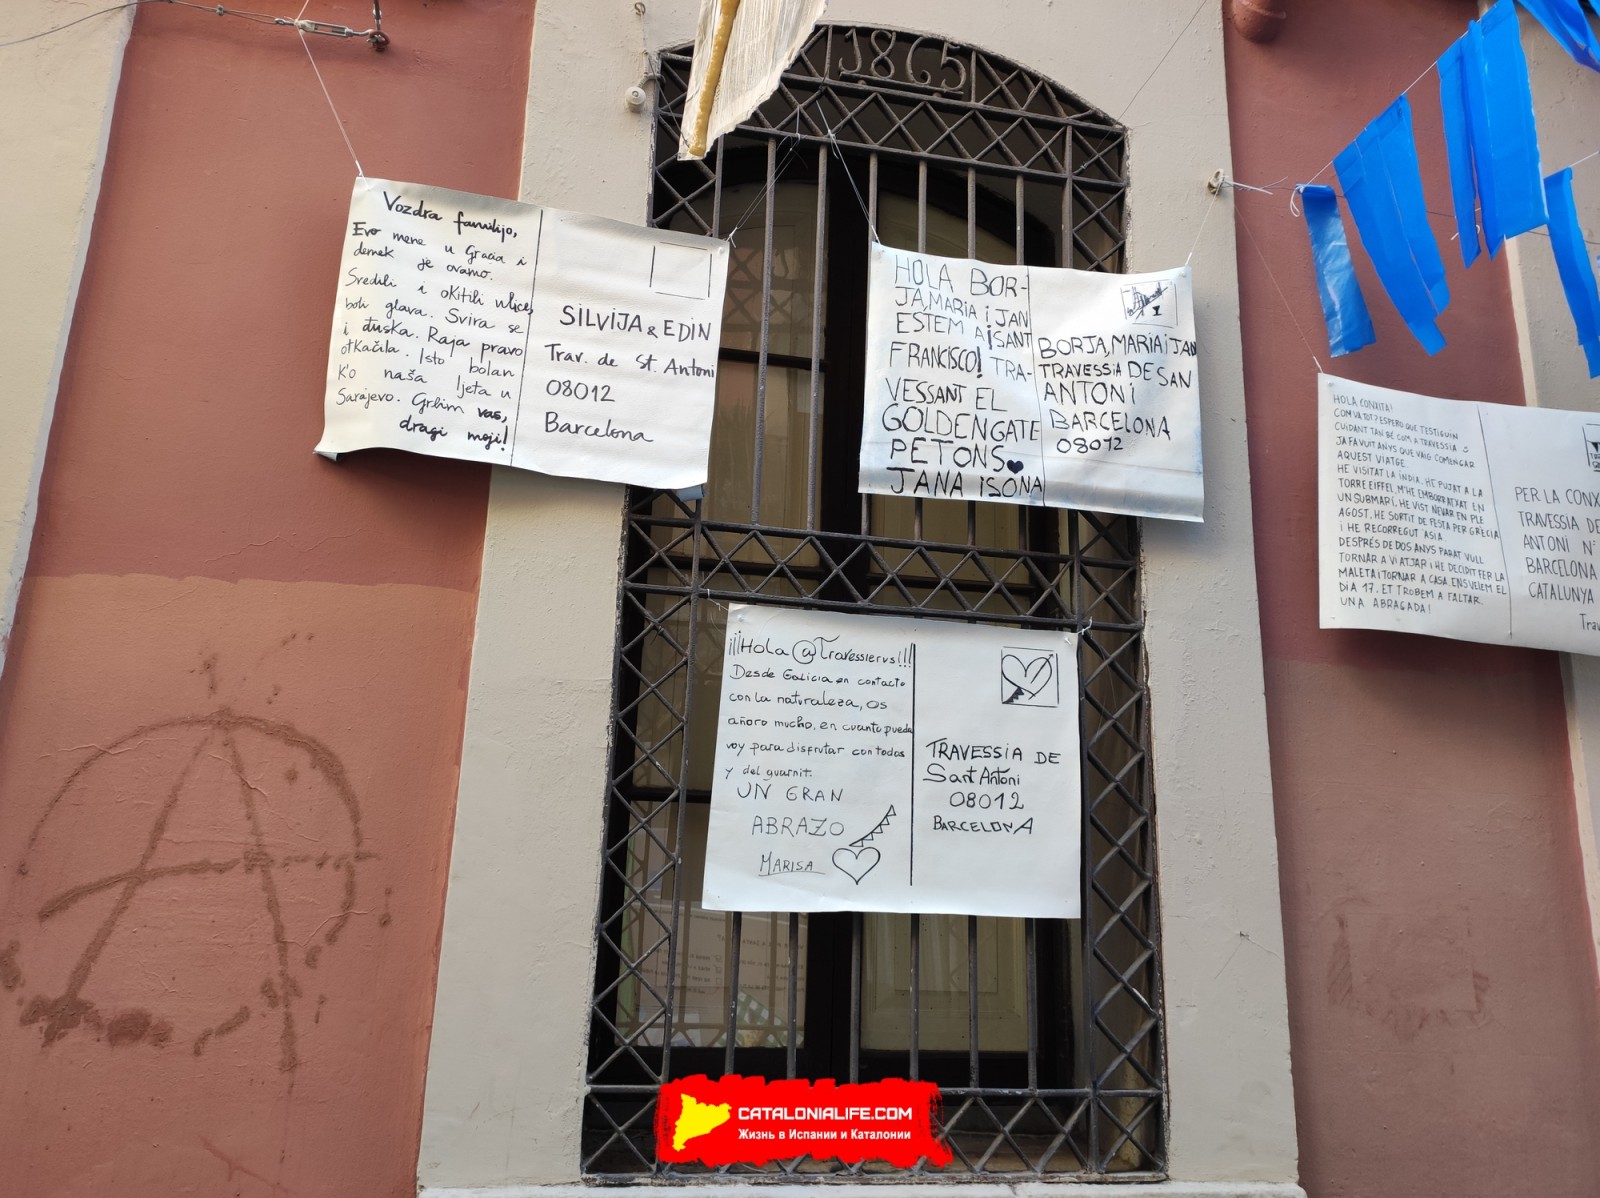 1865
Vozdra familijo,
Evo mene u Gracia i
demek je ovamo.
Sredili i okitili ulice,
boli glava. Svira se
i đuska. Raja pravo
otkačila. Isto bolan
k'o naša ljeta u
Sarajevo. Grlim vas,
dragi moji!
SILVIJA & EDIN
Trav. de St. Antoni
08012
Barcelona
HOLA BOR-
JA, MARIA i JAN
ESTEM A SANT
FRANCISCO! TRA-
VESSANT EL
GOLDEN GATE
PETONS
JANA ISONA
BORJA, MARIA i JAN
TRAVESSIA DE SAN
ANTONI
BARCELONA
08012
HOLA CONXITA!
COM VA TOT? ESPERO QUE T'ESTIGUIN
CUIDANT TAN BÉ COM A TRAVESSIA
JA FA VUIT ANYS QUE VAIG COMENÇAR
AQUEST VIATGE.
HE VISITAT LA ÍNDIA, HE PUJAT A LA
TORRE EIFFEL, M'HE EMBORRATXAT EN
UN SUBMARÍ, HE VIST NEVAR EN PLE
AGOST, HE SORTIT DE FESTA PER GRÈCIA
I HE RECORREGUT ÀSIA.
DESPRÉS DE DOS ANYS PARAT VULL
TORNAR A VIATJAR I HE DECIDIT FER LA
MALETA I TORNAR A CASA. ENS VEIEM EL
DIA 17. ET TROBEM A FALTAR.
UNA ABRAÇADA!
PER LA CONX
TRAVESSIA DE
ANTONI Nº
BARCELONA
CATALUNYA
Trav
¡¡¡Hola @Travessierus!!!
Desde Galicia en contacto
con la naturaleza, os
añoro mucho, en cuanto pueda
voy para disfrutar con todos
y del guarnit.
UN GRAN
ABRAZO
MARISA
TRAVESSIA DE
Sant Antoni
08012
BARCELONA
CATALONIALIFE.COM
Жизнь в Испании и Каталонии